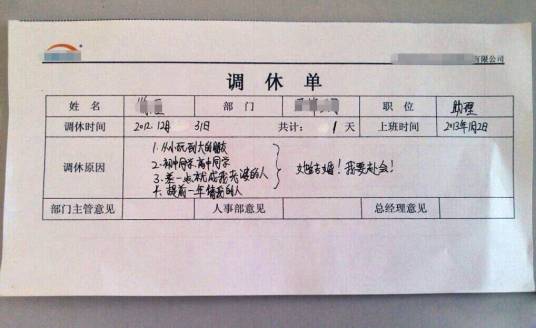 有限公司
调休单
姓名 部门 职位 助理
调休时间 2012.12月31日 共计:1天 上班时间 2013年1月2日
调休原因
1.从小玩到大的朋友
2.初中同学.高中同学
3.差一点就成我老婆的人
4.提前一年请我的人
她结婚!我要赴会!
部门主管意见 人事部意见 总经理意见